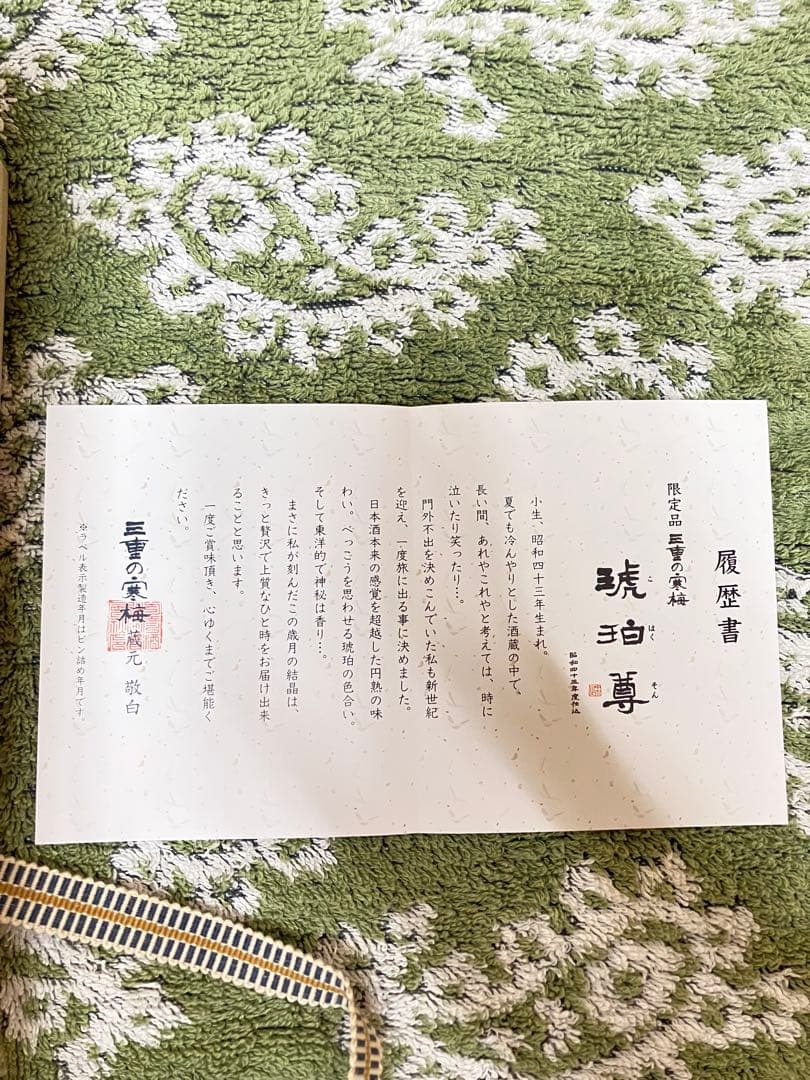 履歴書
限定品 三重の寒梅
琥珀尊
こ はく そん
昭和四十三年度仕込
小生、昭和四十三年生まれ。
夏でも冷んやりとした酒蔵の中で、
長い間、あれやこれやと考えては、時に
泣いたり笑ったり…。
門外不出を決めこんでいた私も新世紀
を迎え、一度旅に出る事に決めました。
日本酒本来の感覚を超越した円熟の味
わい。べっこうを思わせる琥珀の色合い。
そして東洋的で神秘は香り…。
まさに私が刻んだこの歳月の結晶は、
きっと贅沢で上質なひと時をお届け出来
ることと思います。
一度ご賞味頂き、心ゆくまでご堪能く
ださい。
三重の寒梅 蔵元 敬白
※ラベル表示製造年月はビン詰め年月です。